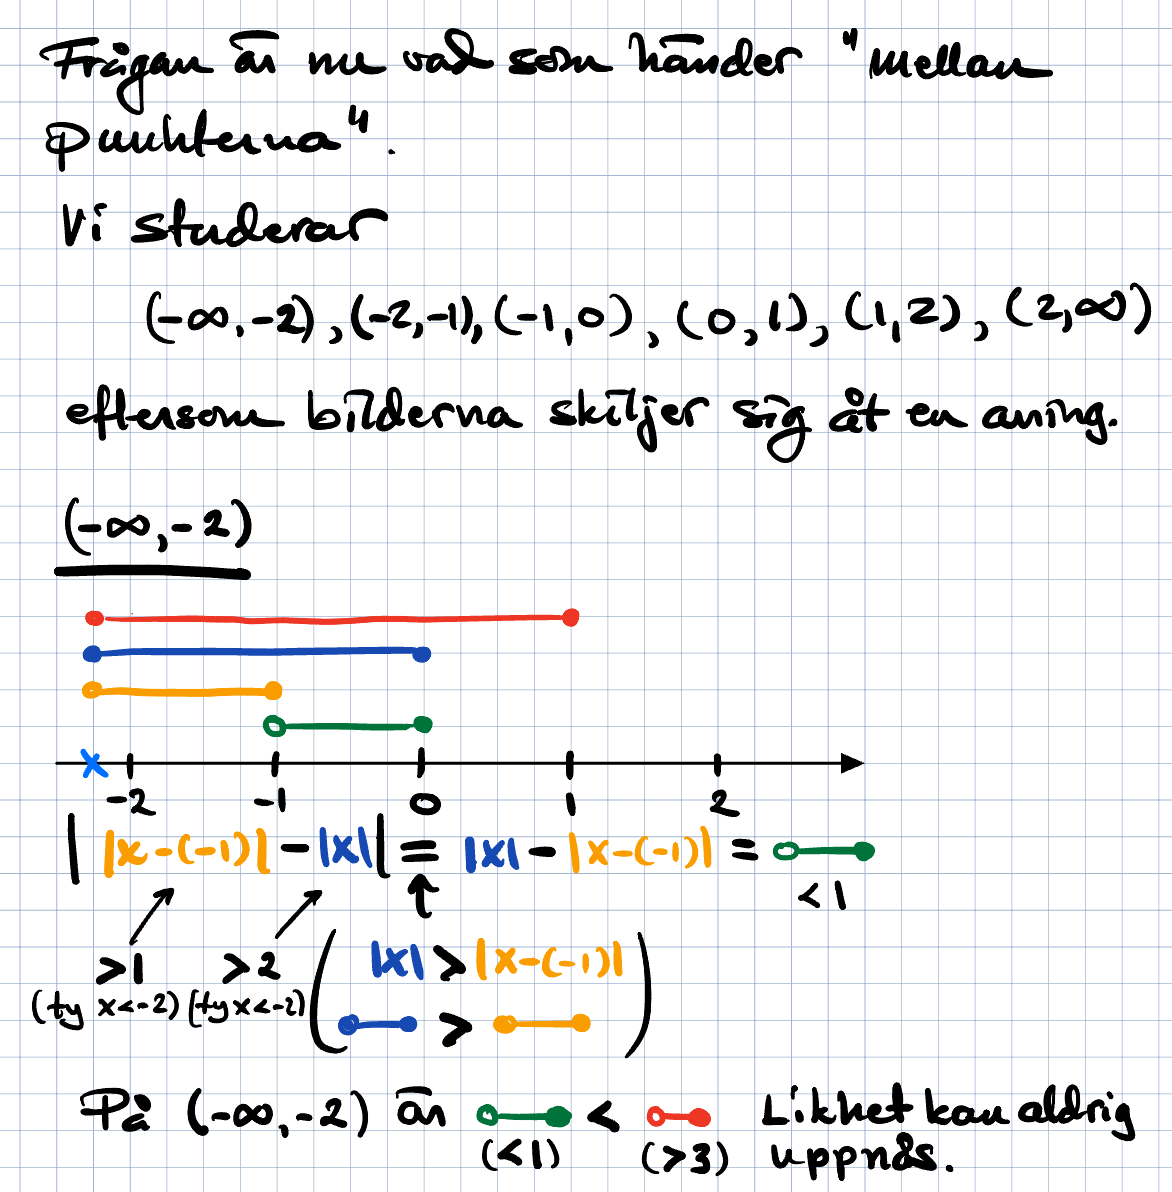 Frågan är nu vad som händer "mellan
punkterna".
Vi studerar
(-∞,-2), (-2,-1), (-1,0), (0,1), (1,2), (2,∞)
eftersom bilderna skiljer sig åt en aning.
(-∞,-2)
x -2 -1 0 1 2
| |x-(-1)| - |x| | = |x| - |x-(-1)| =
<1
>1 >2 ( |x| > |x-(-1)| )
(ty x<-2) (ty x<-2) >
På (-∞,-2) är < Likhet kan aldrig
(<1) (>3) uppnås.